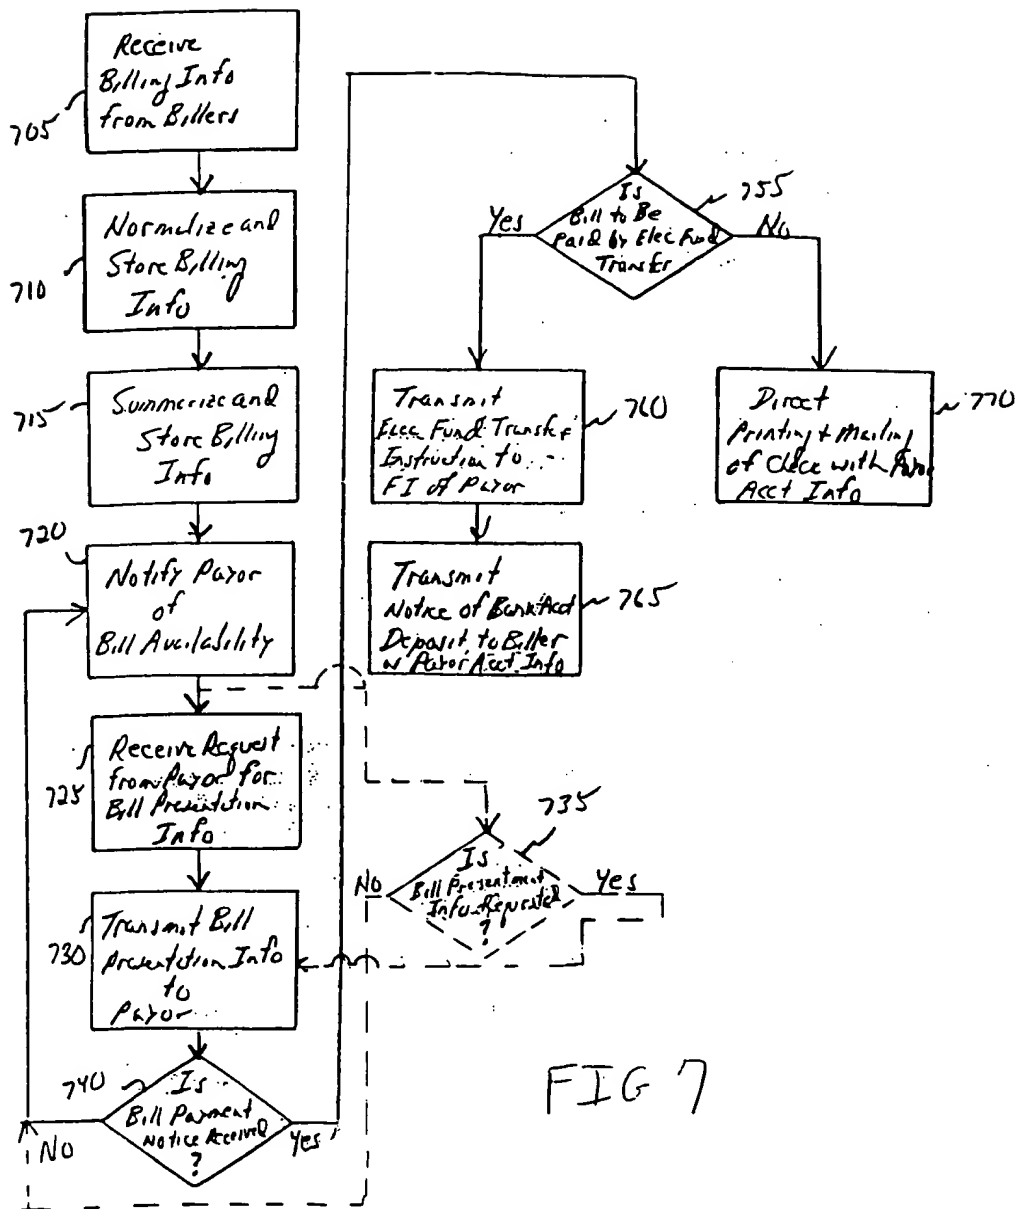 Receive
Billing Info
from Billers
705
Normalize and
Store Billing
Info
710
Summerize and
Store Billing
Info
715
720
Notify Payor
of
Bill Availability
Receive Request
from Payor for
Bill Presentation
Info
725
Transmit Bill
Presentation Info
to
Payor
730
740
Is
Bill Payment
Notice Received
?
No
Yes
Is
Bill to Be
Paid by Elec Fund
Transfer
755
Yes
No
Transmit
Elec Fund Transfer
Instruction to
FI of Payor
760
Direct
Printing + Mailing
of Check with Payor
Acct Info
770
Transmit
Notice of Bank Acct
Deposit to Biller
w Payor Acct Info
765
735
Is
Bill Presentment
Info Requested
?
No
Yes
FIG 7